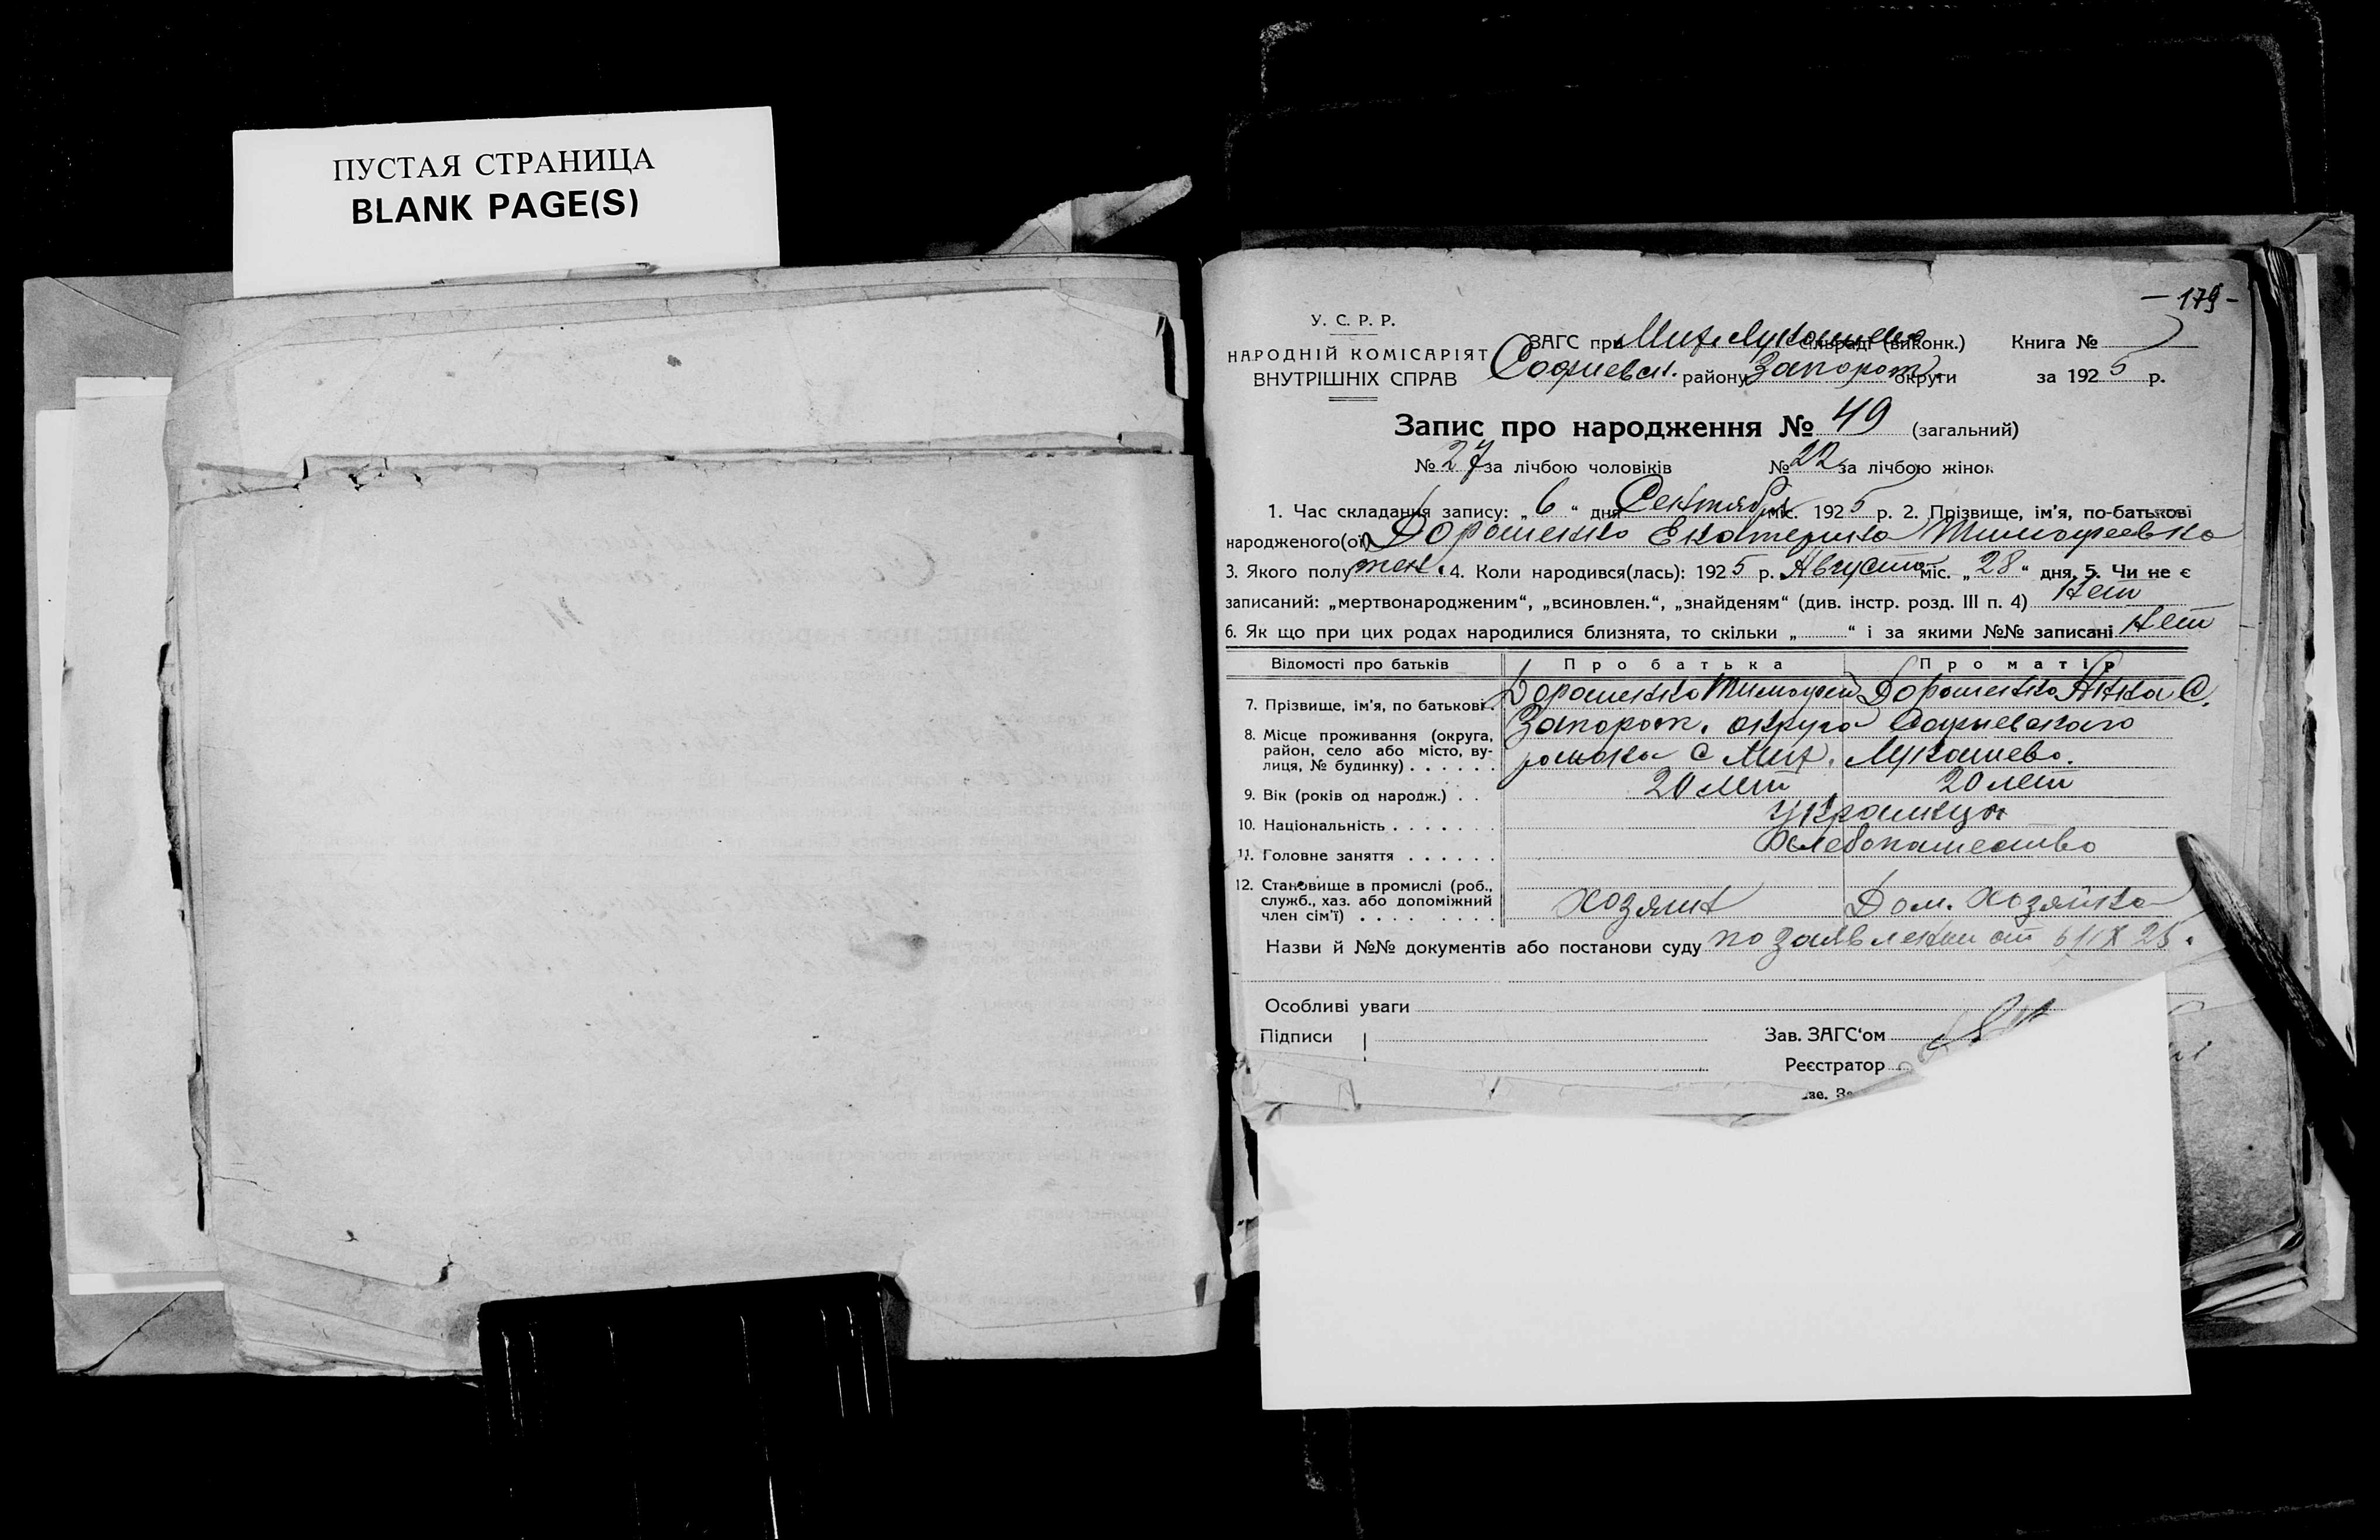 ПУСТАЯ СТРАНИЦА
BLANK PAGE(S)
— 179 -
У. С. Р. Р.
НАРОДНІЙ КОМІСАРІЯТ
ВНУТРІШНІХ СПРАВ
ЗАГС при Мих. Лукашево сільраді (виконк.) Книга №
Софиевск. району Запорож. округи за 1925 р.
Запис про народження № 49 (загальний)
№ 27 за лічбою чоловіків № 22 за лічбою жінок
1. Час складання запису: „6“ дня Сентября міс. 1925 р. 2. Прізвище, ім'я, по-батькові
народженого(ої) Дорошенко Екатерина Тимофеевна
3. Якого полу жен. 4. Коли народився(лась): 1925 р. Августа міс. „28“ дня, 5. Чи не є
записаний: „мертвонародженим“, „всиновлен.“, „знайденям“ (див. інстр. розд. III п. 4) Нет
6. Як що при цих родах народилися близнята, то скільки „ “ і за якими №№ записані Нет
Відомості про батьків Про батька Про матір
7. Прізвище, ім'я, по батькові. Дорошенко Тимофей Дорошенко Анна С.
8. Місце проживання (округа, район, село або місто, вулиця, № будинку) . . . . . . Запорож. округа Софиевского
района с Мих. Лукашево.
9. Вік (років од народж.) . . 20 лет 20 лет
10. Національність . . . . . . . Украинцы
11. Головне заняття . . . . . . Хлебопашество
12. Становище в промислі (роб., служб., хаз. або допоміжний член сім'ї) . . . . . . . . . Хозяин Дом. Хозяйка
Назви й №№ документів або постанови суду по заявлении от 6/IX 25.
Особливі уваги
Підписи Зав. ЗАГС'ом
Реєстратор